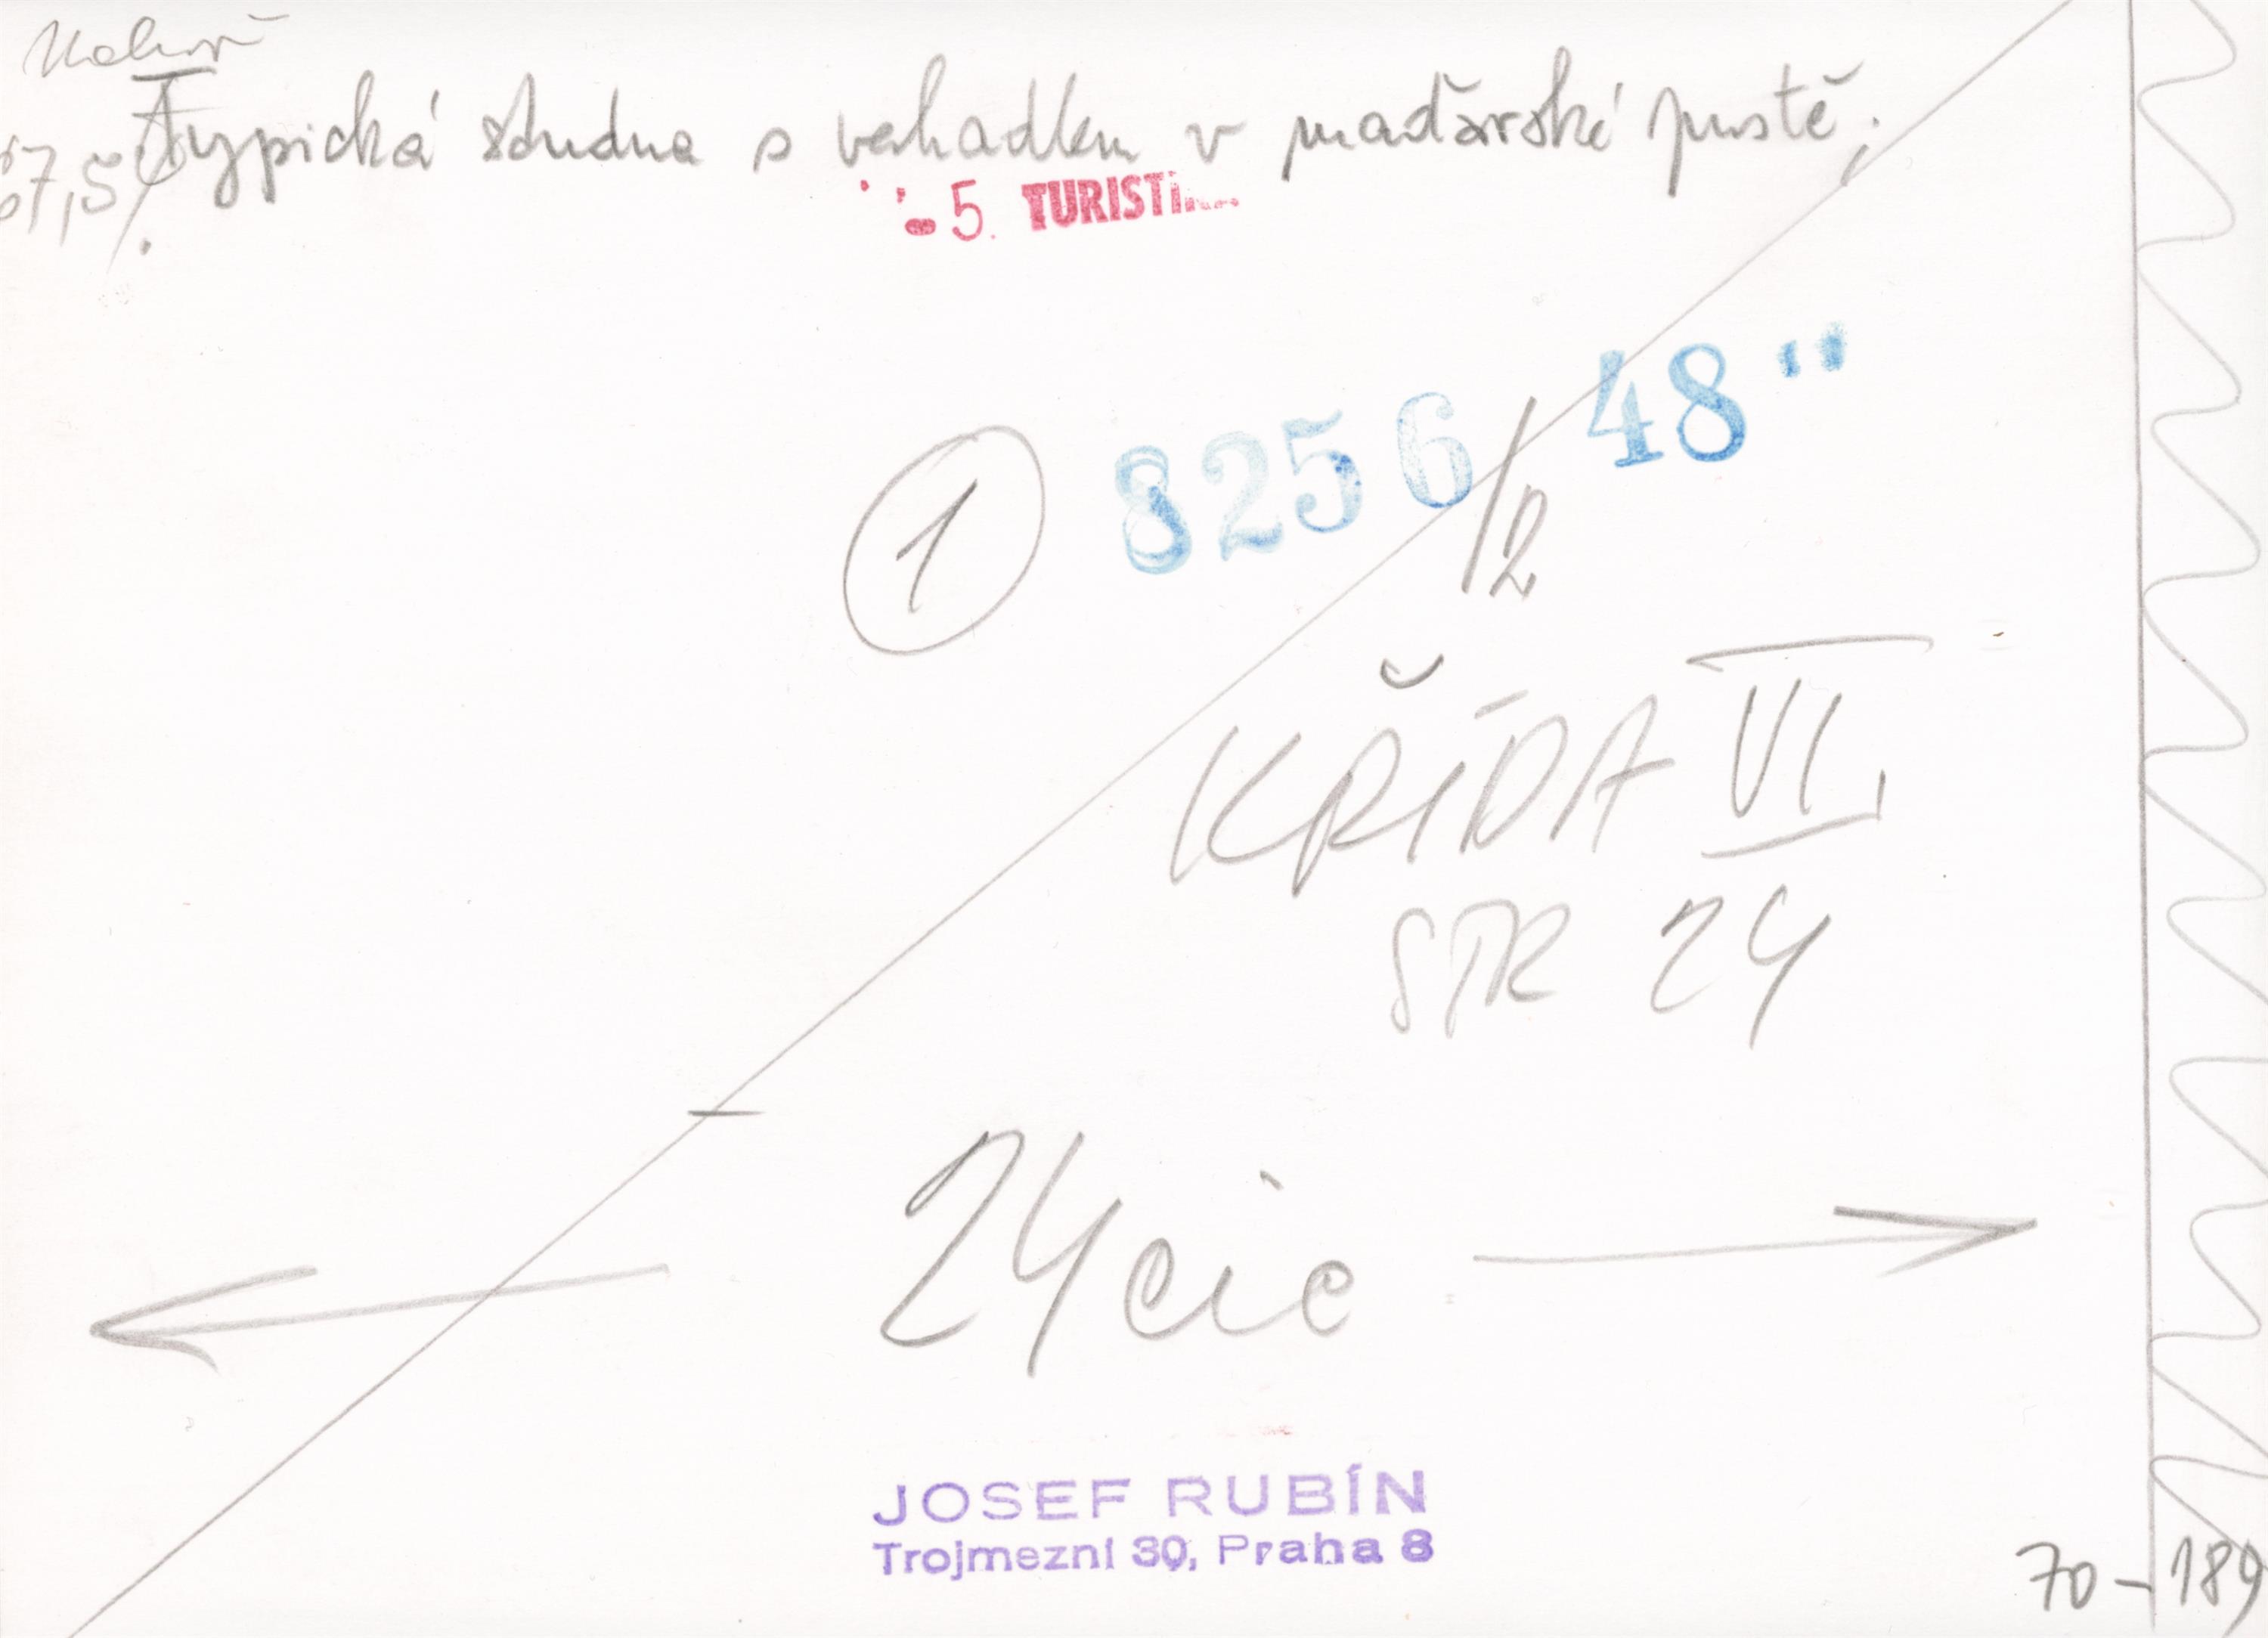 Typická studna s vahadlem v maďarské pustě.
67,5
- 5. TURISTI
1
8256/2 48"
KŘÍDA VI.
STR 24
24 cic
JOSEF RUBÍN
Trojmezní 30, Praha 8
70-189